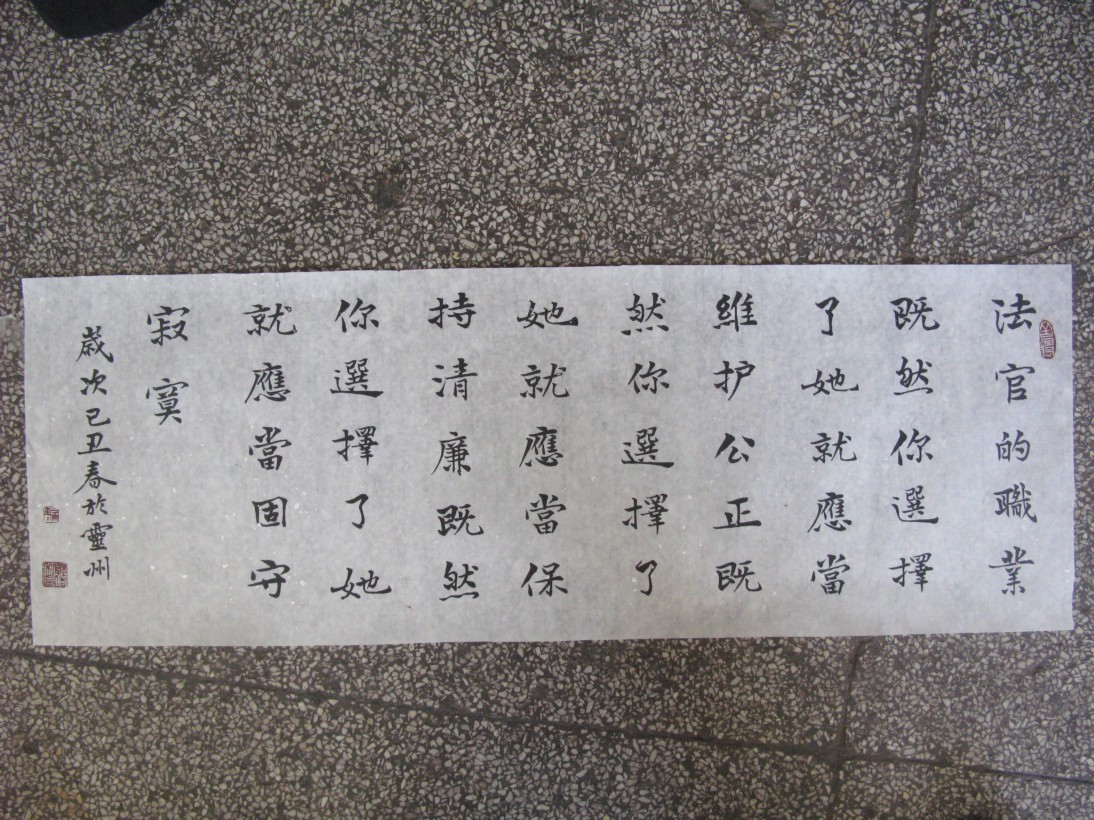 法官的職業
既然你選擇
了她就應當
維护公正既
然你選擇了
她就應當保
持清廉既然
你選擇了她
就應當固守
寂寞
歲次己丑春於靈州